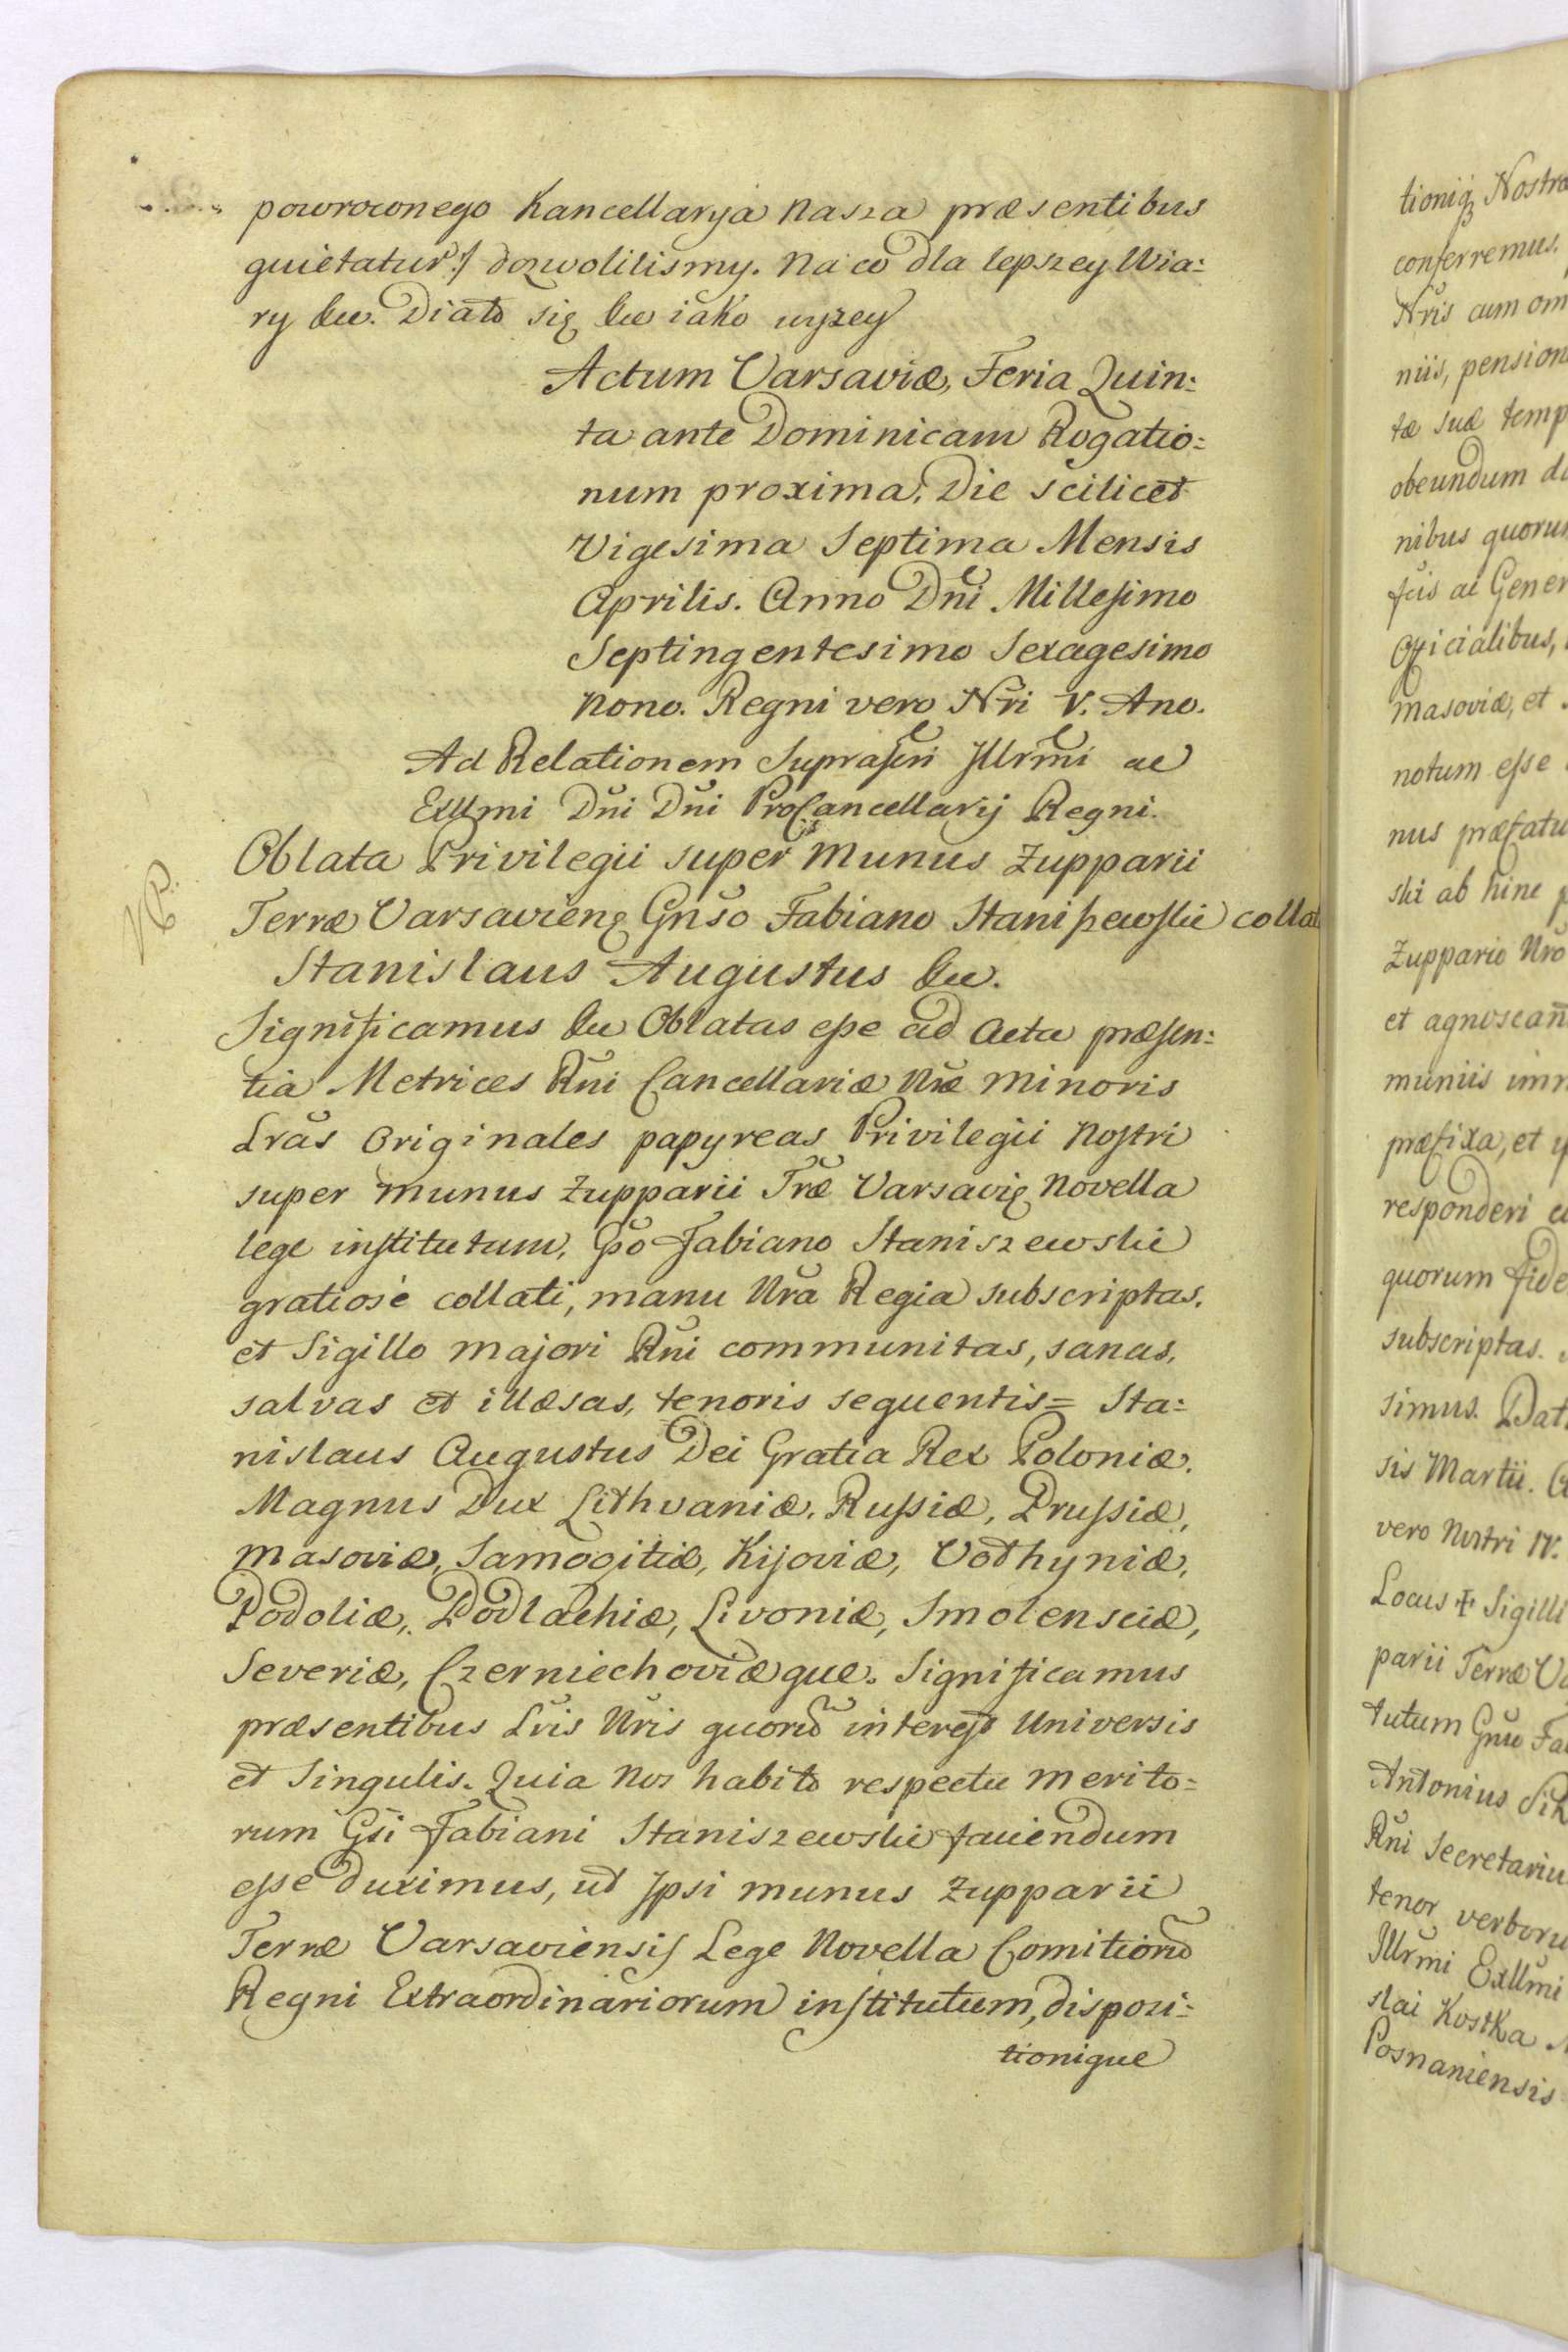 powroconego Kancellaryja Nasza præsentibus
quietatur:/ dozwolilismy. Na co dla lepszey Wia:
ry &c. Diało się &c iako wyzey
Actum Varsaviæ, Feria Quin:
ta ante Dominicam Rogatio:
num proxima, Die scilicet
Vigesima Septima Mensis
Aprilis. Anno Dni Millesimo
Septingentesimo Sexagesimo
Nono. Regni vero Nri V. Ano.
Ad Relationem Suprascri Jllrmi ac
Exllmi Dni Dni ProCancellarij Regni.
Oblata Privilegii super Munus Zupparii
Terræ Varsavien Gnso Fabiano Staniszewskie colla
Stanislaus Augustus &c.
Significamus &c Oblatas esse ad Acta præsen:
tia Metrices Rni Cancellariæ Nræ Minoris
Lras Originales papyreas Privilegii Nostri
super munus Zupparii Træ Varsavię Novella
lege institutum, Gso Fabiano Staniszewskie
gratiosè collati, manu Nra Regia subscriptas,
et Sigillo majori Rni communitas, sanas,
salvas et illæsas, tenoris sequentis= Sta:
nislaus Augustus Dei Gratia Rex Poloniæ,
Magnus Dux Lithvaniæ, Russiæ, Prussiæ,
Masoviæ, Samogitiæ, Kijoviæ, Volhyniæ,
Podoliæ, Podlachiæ, Livoniæ, Smolensciæ,
Severiæ, Czerniechoviæque. Significamus
præsentibus Lris Nris quorũ interest Universis
et Singulis. Quia Nos habito respectu merito=
rum Gsi Fabiani Staniszewskie faciendum
esse duximus, ut Jpsi munus Zupparii
Terræ Varsaviensis Lege Novella Comitiorũ
Regni Extraordinariorum institutum, disposi:
tionique
tioniq Nostræ
conferremus.
Nris cum om
niis, pension
tæ suæ temp
obeundum d
nibus quoru
fcis ac Gener
Officialibus,
Masoviæ, et
notum esse
nus præfatu
ski ab hinc p
Zuppario Nro
et agnoscan
muniis imm
præfixa, et
responderi c
quorum fide
subscriptas.
simus. Dat
sis Martii. A
vero Nostri IV.
Locus + Sigilli
parii Terræ Va
tutum Gno Fa
Antonius Sik
Rni Secretariu
tenor verboru
Jllrmi Exllmi
slai Kostka
Posnaniensis